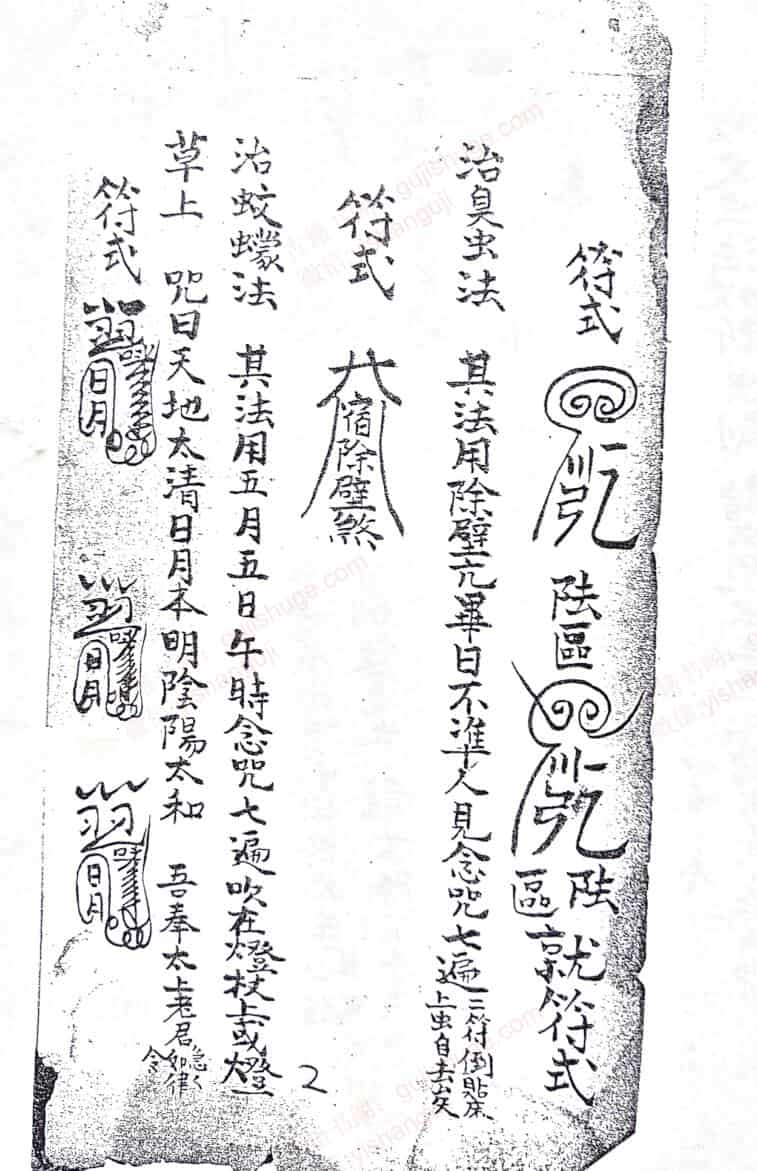 符式
陆區
陆區 就符式
治臭虫法 其法用除壁亢畢日不準人見念咒七遍 二符倒貼床上虫自去矣
符式
宿除壁煞
治蚊蠓法 其法用五月五日午時念咒七遍吹在燈杖上或燈
草上 咒曰天地太清日月本明陰陽太和 吾奉太上老君急々如律令
符式
日月
日月
日月
2